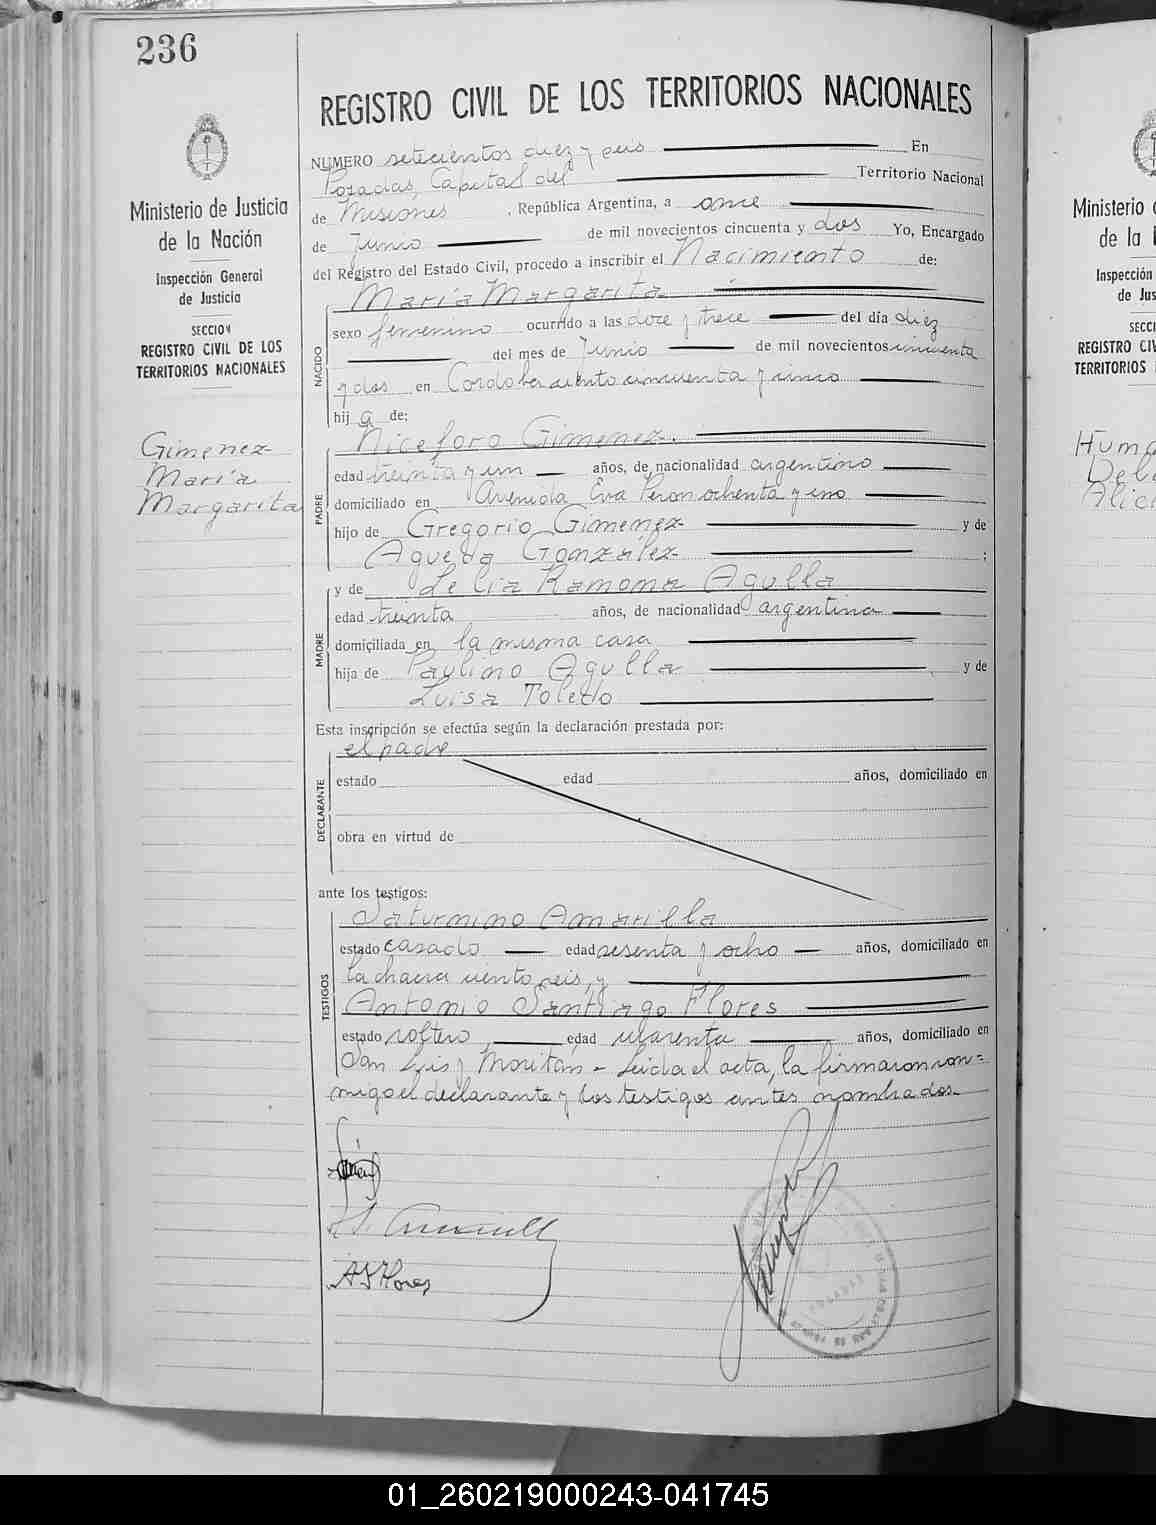 236
Ministerio de Justicia
de la Nación
Inspección General
de Justicia
SECCION
REGISTRO CIVIL DE LOS
TERRITORIOS NACIONALES
Gimenez
María
Margarita
REGISTRO CIVIL DE LOS TERRITORIOS NACIONALES
NUMERO setecientos diez y seis En
Posadas, Capital del Territorio Nacional
de Misiones, República Argentina, a once
de Junio de mil novecientos cincuenta y dos Yo, Encargado
del Registro del Estado Civil, procedo a inscribir el Nacimiento de:
María Margarita
NACIDO
sexo femenino ocurrido a las doce y trece del día diez
del mes de Junio de mil novecientos cincuenta
y dos en Cordoba ciento cincuenta y cinco
hij a de:
Niceforo Gimenez.
PADRE
edad treinta y un años, de nacionalidad argentino
domiciliado en Avenida Eva Peron ochenta y uno
hijo de Gregorio Gimenez y de
Agueda González ;
y de Lelia Ramona Agulla
MADRE
edad treinta años, de nacionalidad argentina
domiciliada en la misma casa
hija de Paulino Agulla y de
Luisa Toledo
Esta inscripción se efectúa según la declaración prestada por:
el padre
DECLARANTE
estado edad años, domiciliado en
obra en virtud de
ante los testigos:
Saturnino Amarilla
TESTIGOS
estado casado edad sesenta y ocho años, domiciliado en
la chacra ciento seis, y
Antonio Santiago Flores
estado soltero, edad cuarenta años, domiciliado en
San Luis y Moritán - Leida el acta, la firmaron con=
migo el declarante y los testigos antes nombrados.
A S Flores
Ministerio
de la
Inspección
de Jus
SECCI
REGISTRO CIV
TERRITORIOS
Alici
01_260219000243-041745